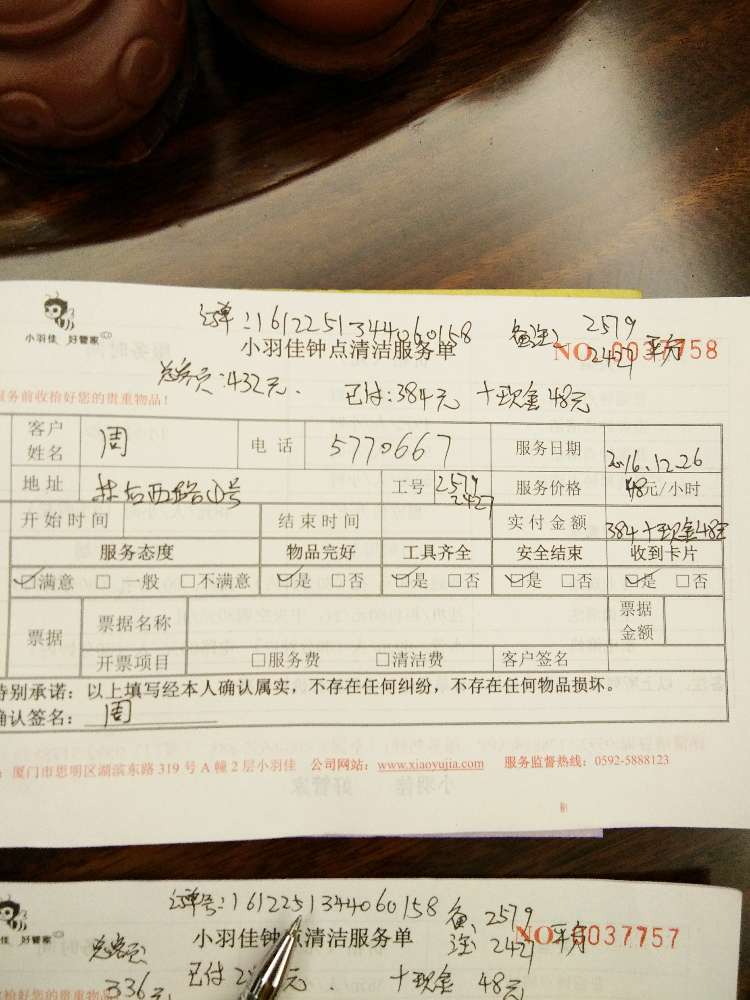 单:1612251344060158 备注: 2579
小羽佳 好管家 小羽佳钟点清洁服务单 NO 0037758
2427 平方
:432元. 已付:384元 十现金48元
服务前收拾好您的贵重物品!
客户姓名 周 电话 5770667 服务日期 2016.12.26
地址 林后西路 号 工号 2579 2427 服务价格 48元/小时
开始时间 结束时间 实付金额 384十现金48元
服务态度 物品完好 工具齐全 安全结束 收到卡片
☑满意 □一般 □不满意 ☑是 □否 ☑是 □否 ☑是 □否 ☑是 □否
票据 票据名称 票据金额
开票项目 □服务费 □清洁费 客户签名
特别承诺:以上填写经本人确认属实,不存在任何纠纷,不存在任何物品损坏。
确认签名: 周
:厦门市思明区湖滨东路319号A幢2层小羽佳 公司网站:www.xiaoyujia.com 服务监督热线:0592-5888123
单号:1612251344060158 备注: 2579
佳 好管家 小羽佳钟点清洁服务单 NO 0037757
平方
336元 已付 元. 十现金 48元
收拾好您的贵重物品